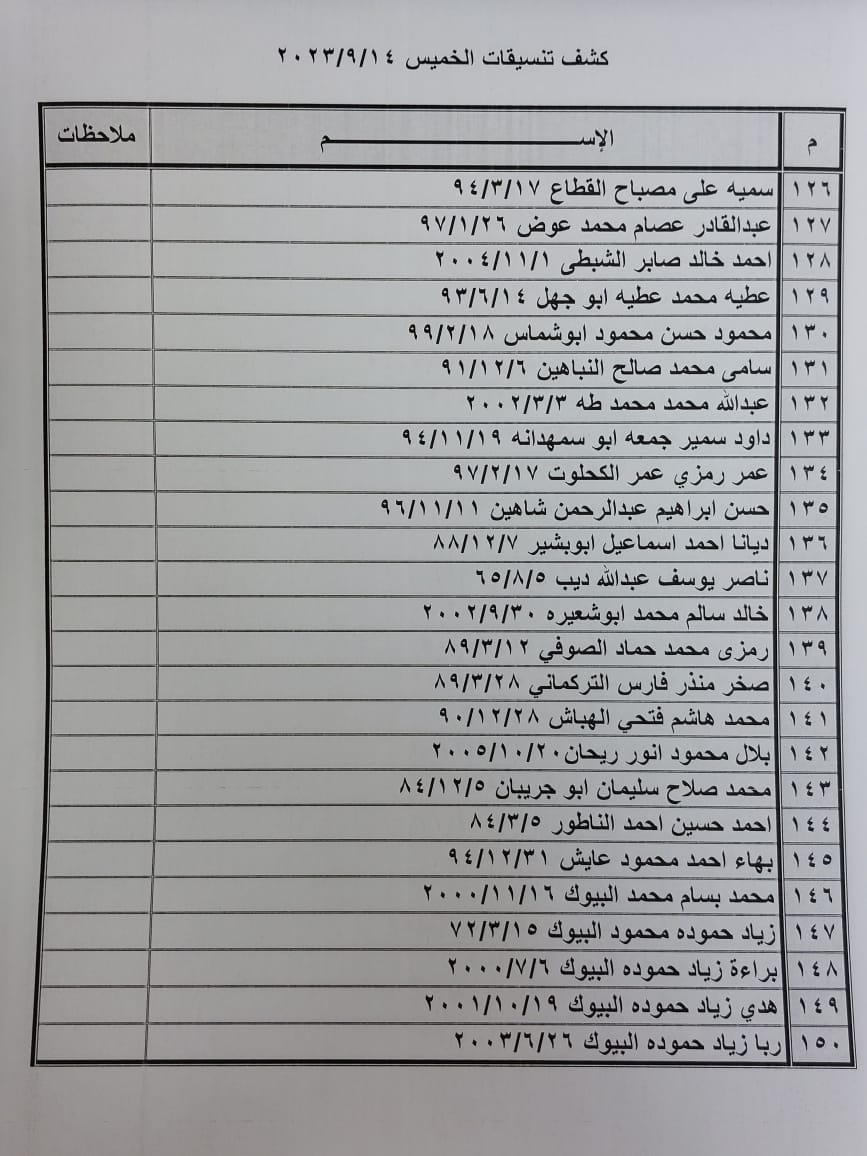 كشف تنسيقات الخميس ٢٠٢٣/٩/١٤
م الإســـــــــــــــــم ملاحظات
١٢٦ سميه على مصباح القطاع ٩٤/٣/١٧
١٢٧ عبدالقادر عصام محمد عوض ٩٧/١/٢٦
١٢٨ احمد خالد صابر الشبطى ٢٠٠٤/١١/١
١٢٩ عطيه محمد عطيه ابو جهل ٩٣/٦/١٤
١٣٠ محمود حسن محمود ابوشماس ٩٩/٢/١٨
١٣١ سامى محمد صالح النباهين ٩١/١٢/٦
١٣٢ عبدالله محمد محمد طه ٢٠٠٢/٣/٣
١٣٣ داود سمير جمعه ابو سمهدانه ٩٤/١١/١٩
١٣٤ عمر رمزي عمر الكحلوت ٩٧/٢/١٧
١٣٥ حسن ابراهيم عبدالرحمن شاهين ٩٦/١١/١١
١٣٦ ديانا احمد اسماعيل ابوبشير ٨٨/١٢/٧
١٣٧ ناصر يوسف عبدالله ديب ٦٥/٨/٥
١٣٨ خالد سالم محمد ابوشعيره ٢٠٠٢/٩/٣٠
١٣٩ رمزى محمد حماد الصوفي ٨٩/٣/١٢
١٤٠ صخر منذر فارس التركماني ٨٩/٣/٢٨
١٤١ محمد هاشم فتحي الهباش ٩٠/١٢/٢٨
١٤٢ بلال محمود انور ريحان ٢٠٠٥/١٠/٢٠
١٤٣ محمد صلاح سليمان ابو جريبان ٨٤/١٢/٥
١٤٤ احمد حسين احمد الناطور ٨٤/٣/٥
١٤٥ بهاء احمد محمود عايش ٩٤/١٢/٣١
١٤٦ محمد بسام محمد البيوك ٢٠٠٠/١١/١٦
١٤٧ زياد حموده محمود البيوك ٧٢/٣/١٥
١٤٨ براءة زياد حموده البيوك ٢٠٠٠/٧/٦
١٤٩ هدي زياد حموده البيوك ٢٠٠١/١٠/١٩
١٥٠ ربا زياد حموده البيوك ٢٠٠٣/٦/٢٦